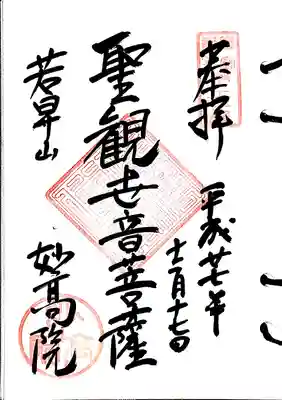 奉拝
平成廿七年
十一月十七日
聖観世音菩薩
若早山
妙高院